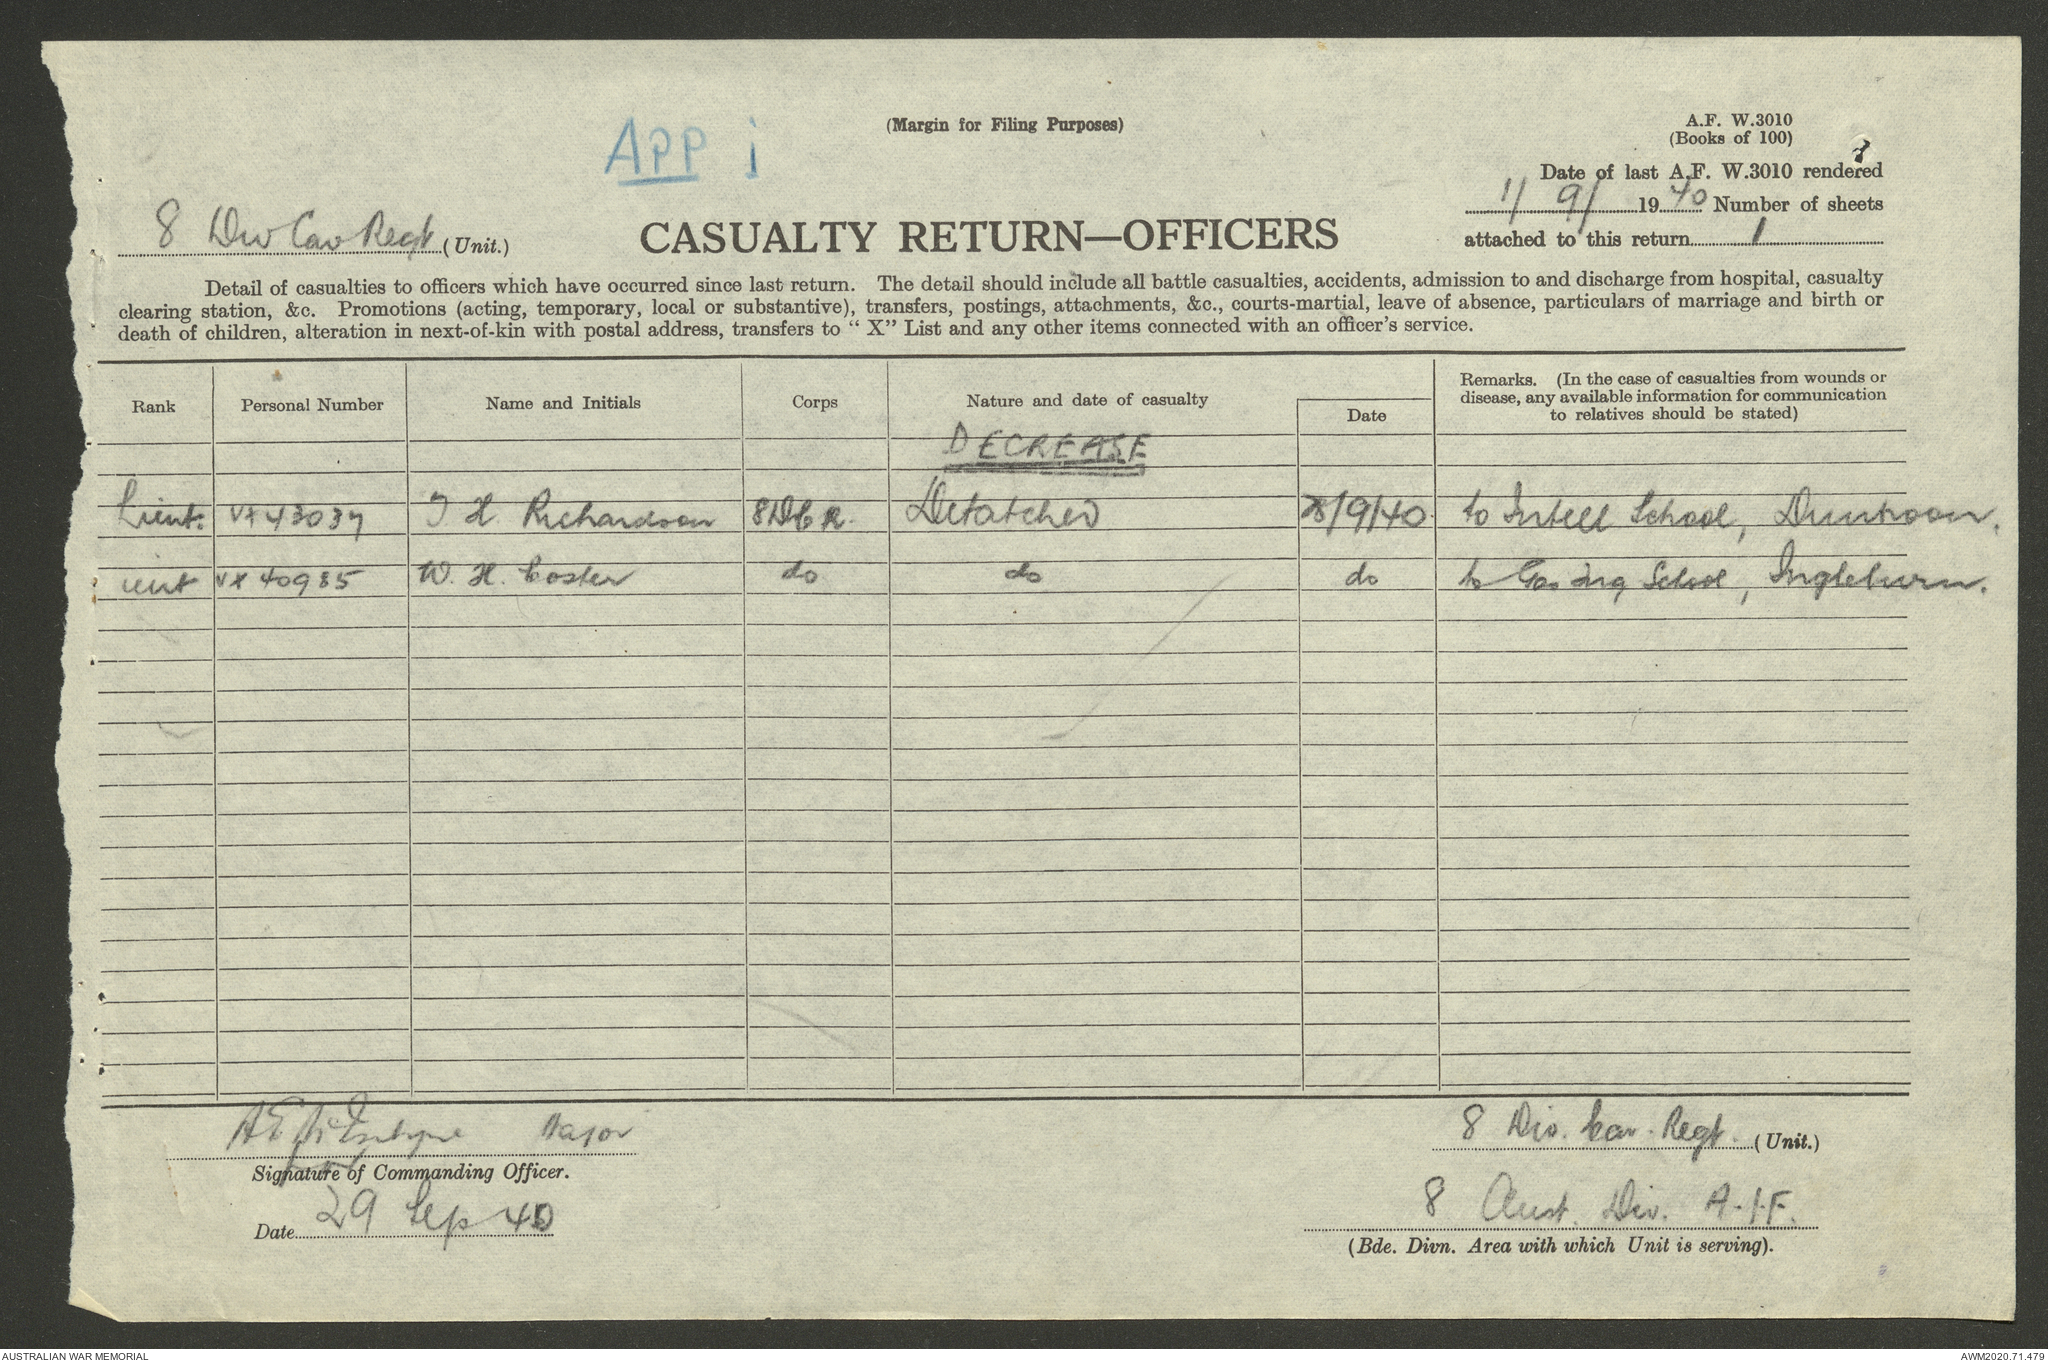 APP i
(Margin for Filing Purposes)
A.F. W.3010
(Books of 100)
Date of last A.F. W.3010 rendered
1/ 9/ 1940 Number of sheets
attached to this return 1
8 Div Cav Regt (Unit.)
CASUALTY RETURN—OFFICERS
Detail of casualties to officers which have occurred since last return. The detail should include all battle casualties, accidents, admission to and discharge from hospital, casualty
clearing station, &c. Promotions (acting, temporary, local or substantive), transfers, postings, attachments, &c., courts-martial, leave of absence, particulars of marriage and birth or
death of children, alteration in next-of-kin with postal address, transfers to “ X” List and any other items connected with an officer's service.
Rank Personal Number Name and Initials Corps Nature and date of casualty Date Remarks. (In the case of casualties from wounds or
disease, any available information for communication
to relatives should be stated)
DECREASE
Lieut. VX43037 I H. Richardson 8DCR. Detatched /9/40 to Intell School, Duntroon.
ieut VX 40985 W. H. Coster do do do to Gas ing School, Ingleburn.
A E McIntyre Major
Signature of Commanding Officer.
Date 29 Sep 40
8 Div. Cav. Regt. (Unit.)
8 Aust. Div. A.I.F.
(Bde. Divn. Area with which Unit is serving).
AUSTRALIAN WAR MEMORIAL
AWM2020.71.479